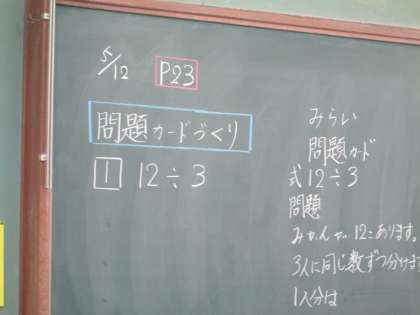 5/12 P23
問題カードづくり
1 12÷3
みらい
問題カード
式 12÷3
問題
みかんが12こあります。
3人に同じ数ずつ分けます
1人分は